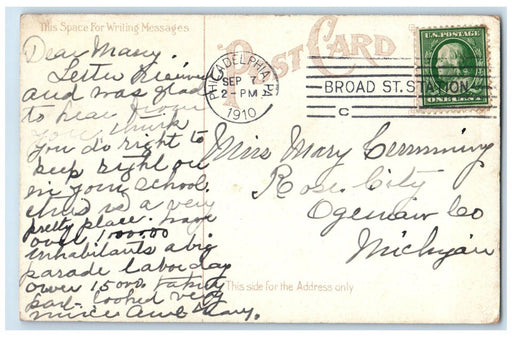 This Space For Writing Messages
POST CARD
U.S. POSTAGE
ONE CENT
PHILADELPHIA, PA
SEP 7
2-PM
1910
BROAD ST. STATION
C
Dear Mary.
Letter Received
and was glad
to hear from
you think
you do right to
keep right on
in your school.
this is a very
pretty place. have
over 1,000.00
inhabitants a big
parade labor day
over 1500 taking
part looked very
nice Aunt Mary.
Miss Mary Cumming
Rose City
Ogemaw Co
Michigan
This side for the Address only